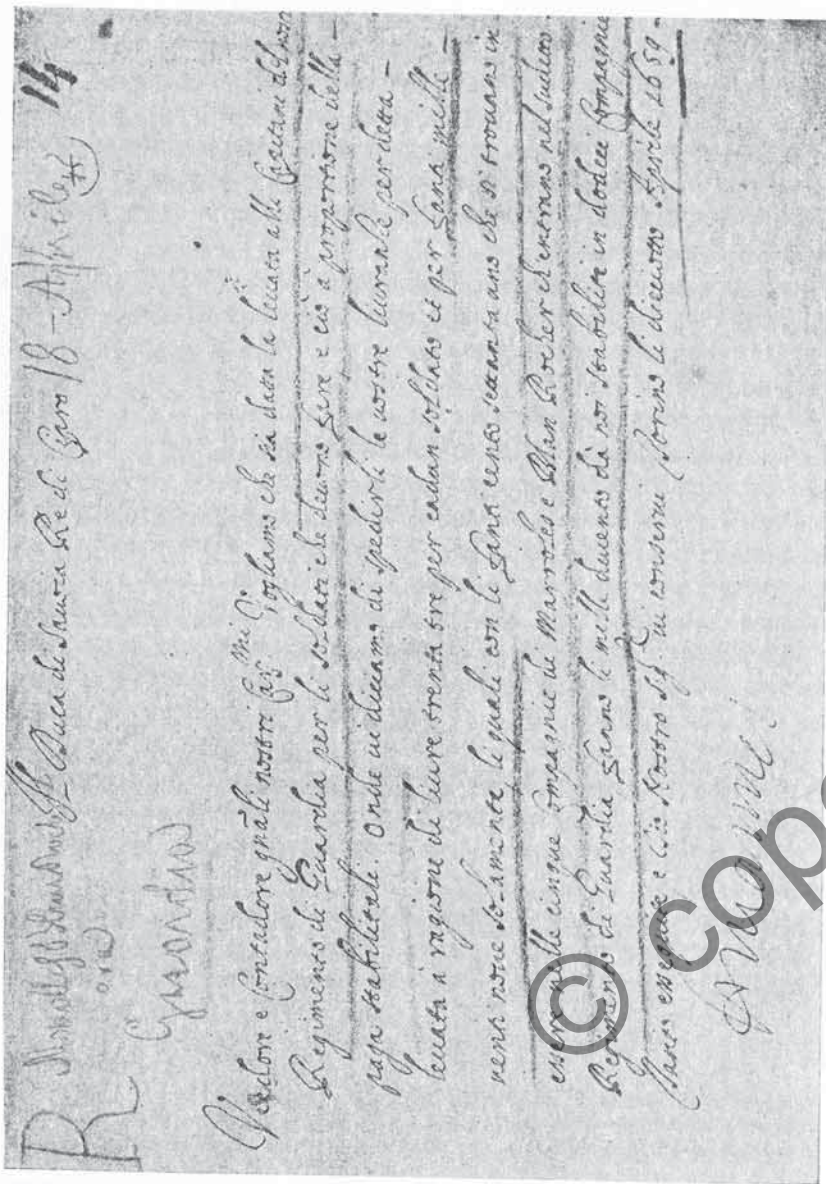 R
Il Duca di Savoia Rè di Cipro 18 - Aprile 14
ora
Guardia
Veedore e Contadore gnāle nostri Car.mi Vogliamo che sia data la leuata alli Capitani del nostro
Regimento di Guardia per li soldati che deuono fare e ciò à proporzione della -
paga stabilitali. Onde ui diciamo di spedirli le uostre liuranze per detta -
leuata à ragione di liure trenta tre per cadun soldato et per fanti mille
venti noue solamente li quali con li fanti cento settanta uno che si trouano in
essere nelle cinque Compagnie di Marroles e Blan Rocher ch'entrano nel sudetto
Regimento di Guardia fanno li mille ducento dà noi stabiliti in dodeci Compagnie
Tanto esseguirete e Dio Nostro Sig.r ui conserui Torino li dieciotto Aprile 1659 -
© cop